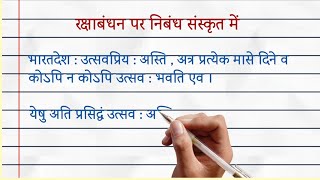 रक्षाबंधन पर निबंध संस्कृत में
भारतदेश : उत्सवप्रिय : अस्ति , अत्र प्रत्येक मासे दिने व
कोऽपि न कोऽपि उत्सव : भवति एव ।
येषु अति प्रसिद्वं उत्सव :